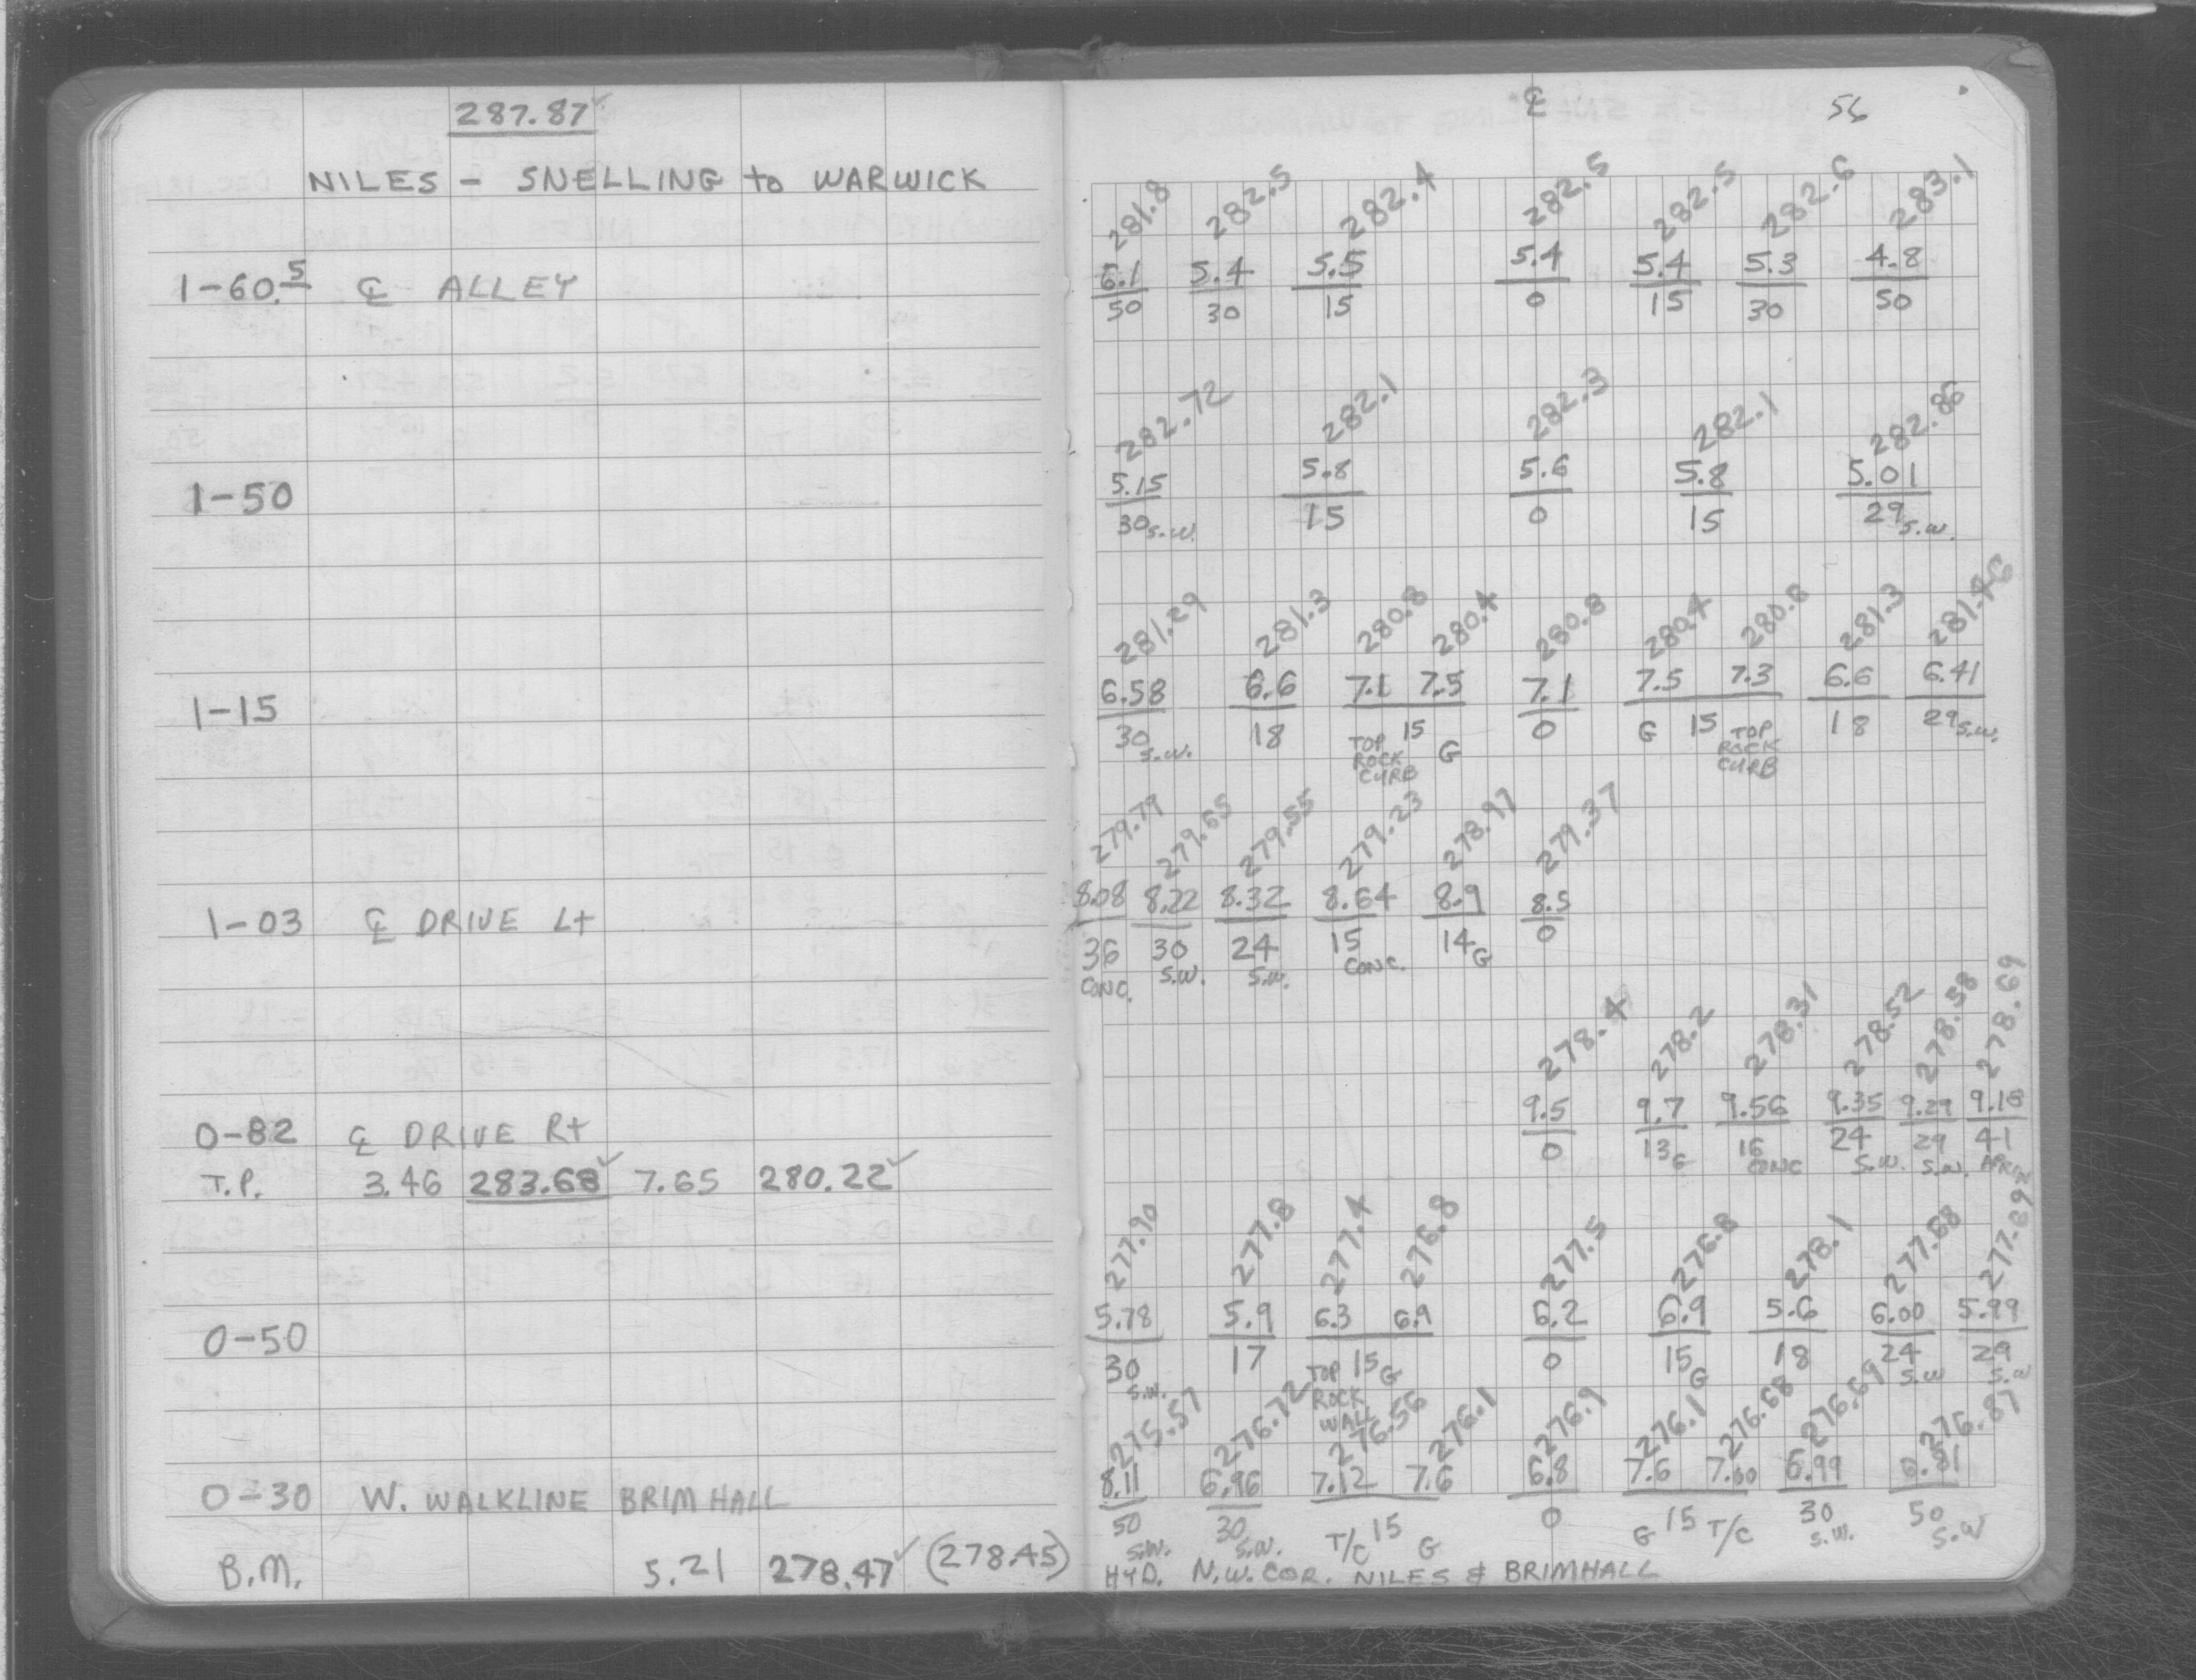 287.87✓
NILES - SNELLING to WARWICK
1-60.5 ℄ ALLEY
1-50
1-15
1-03 ℄ DRIVE Lt
0-82 ℄ DRIVE Rt
T.P. 3.46 283.68✓ 7.65 280.22✓
0-50
0-30 W. WALKLINE BRIMHALL
B.M. 5.21 278.47✓ (278.45)
℄ 56
281.8 282.5 282.4 282.5 282.5 282.6 283.1
6.1 5.4 5.5 5.4 5.4 5.3 4.8
50 30 15 0 15 30 50
282.72 282.1 282.3 282.1 282.86
5.15 5.8 5.6 5.8 5.01
30 S.W. 15 0 15 29 S.W.
281.29 281.3 280.8 280.4 280.8 280.4 280.8 281.3 281.46
6.58 6.6 7.1 7.5 7.1 7.5 7.3 6.6 6.41
30 S.W. 18 TOP 15 G 0 G 15 TOP 18 29 S.W.
ROCK ROCK
CURB CURB
279.79 279.65 279.55 279.23 278.97 279.37
8.08 8.22 8.32 8.64 8.9 8.5
36 30 24 15 14 G 0
CONC. S.W. S.W. CONC.
278.4 278.2 278.31 278.52 278.58 278.69
9.5 9.7 9.56 9.35 9.29 9.18
0 13 G 16 24 29 41
CONC S.W. S.W. APRON
277.90 277.8 277.4 276.8 277.5 276.8 278.1 277.68 277.69
5.78 5.9 6.3 6.9 6.2 6.9 5.6 6.00 5.99
30 17 TOP 15 G 0 15 G 18 24 29
S.W. ROCK S.W S.W
WALL
275.57 276.72 276.56 276.1 276.9 276.1 276.68 276.69 276.87
8.11 6.96 7.12 7.6 6.8 7.6 7.00 6.99 6.81
50 30 T/C 15 G 0 G 15 T/C 30 50
S.W. S.W. S.W. S.W
HYD. N.W. COR. NILES & BRIMHALL